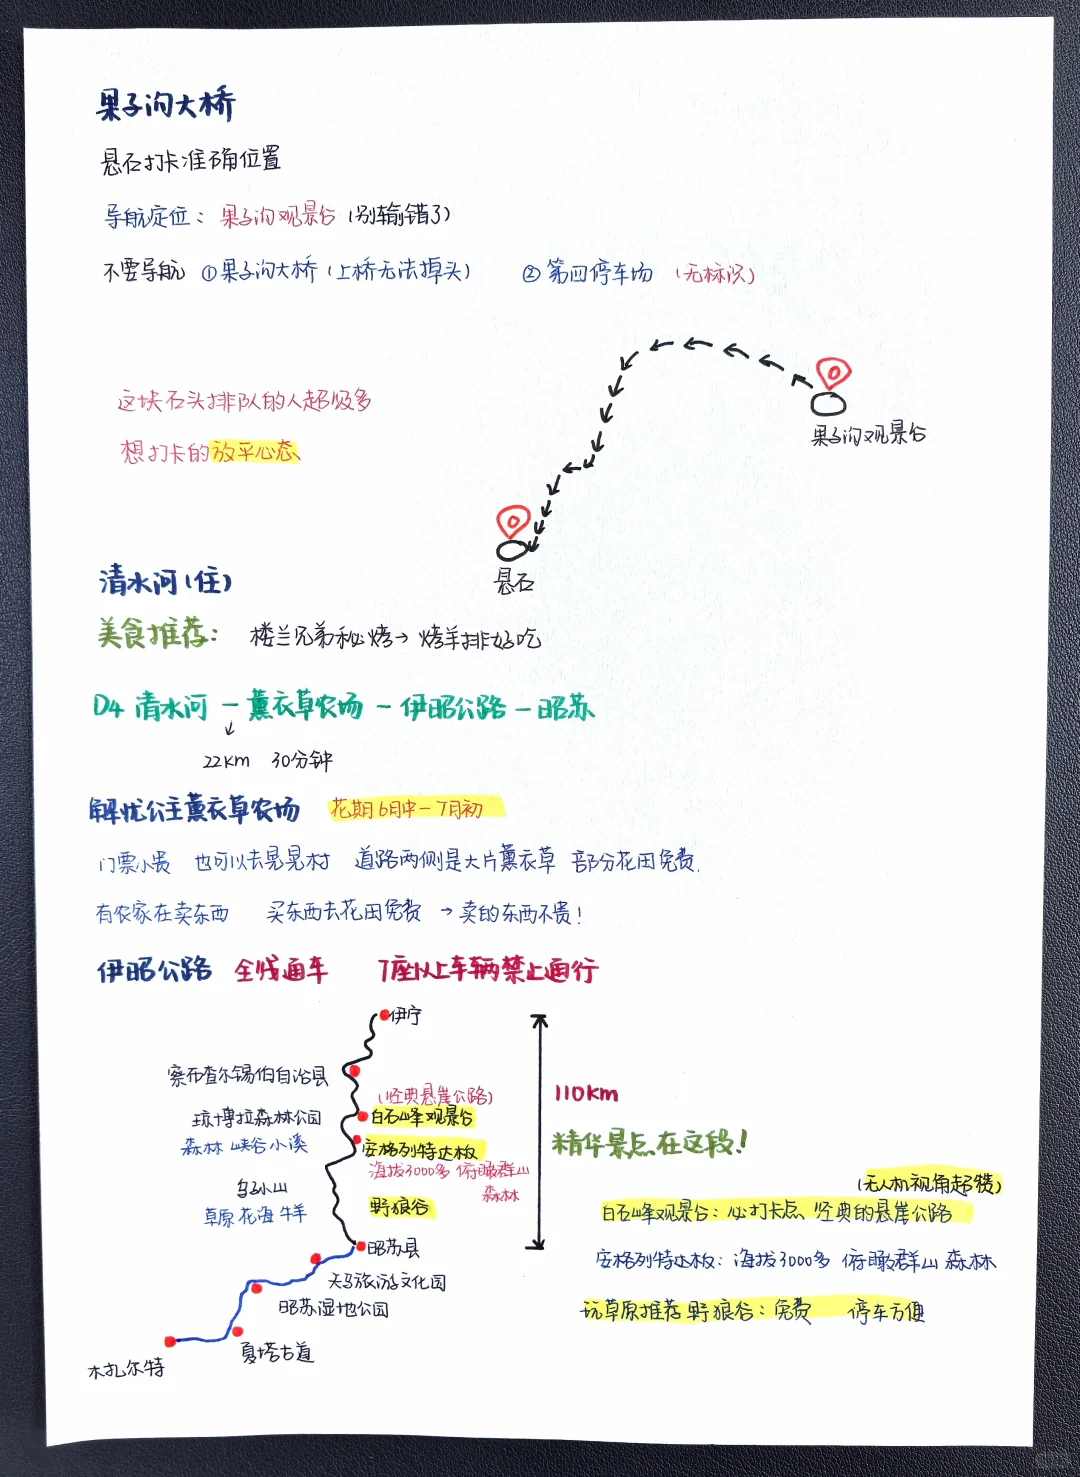 果子沟大桥
悬石打卡准确位置
导航定位：果子沟观景台（别输错了）
不要导航 ①果子沟大桥（上桥无法掉头） ②第四停车场（无标识）
这块石头排队的人超级多
想打卡的放平心态
果子沟观景台
悬石
清水河（住）
美食推荐： 楼兰兄弟秘烤→烤羊排好吃
D4 清水河－薰衣草农场－伊昭公路－昭苏
22km 30分钟
解忧公主薰衣草农场 花期6月中－7月初
门票小贵 也可以去晃晃村 道路两侧是大片薰衣草 部分花田免费.
有农家在卖东西 买东西去花田免费 →卖的东西不贵！
伊昭公路 全线通车 7座以上车辆禁止通行
伊宁
察布查尔锡伯自治县
（经典悬崖公路）
110km
琼博拉森林公园
白石峰观景台
森林 峡谷小溪
安格列特达板
精华景点在这段！
海拔3000多 俯瞰群山
森林
乌孙山
草原 花海 牛羊
野狼谷
（无人机视角超赞）
白石峰观景台：必打卡点、经典的悬崖公路
昭苏县
安格列特达板：海拔3000多 俯瞰群山 森林
天马旅游文化园
昭苏湿地公园
玩草原推荐野狼谷：免费 停车方便
夏塔古道
木扎尔特